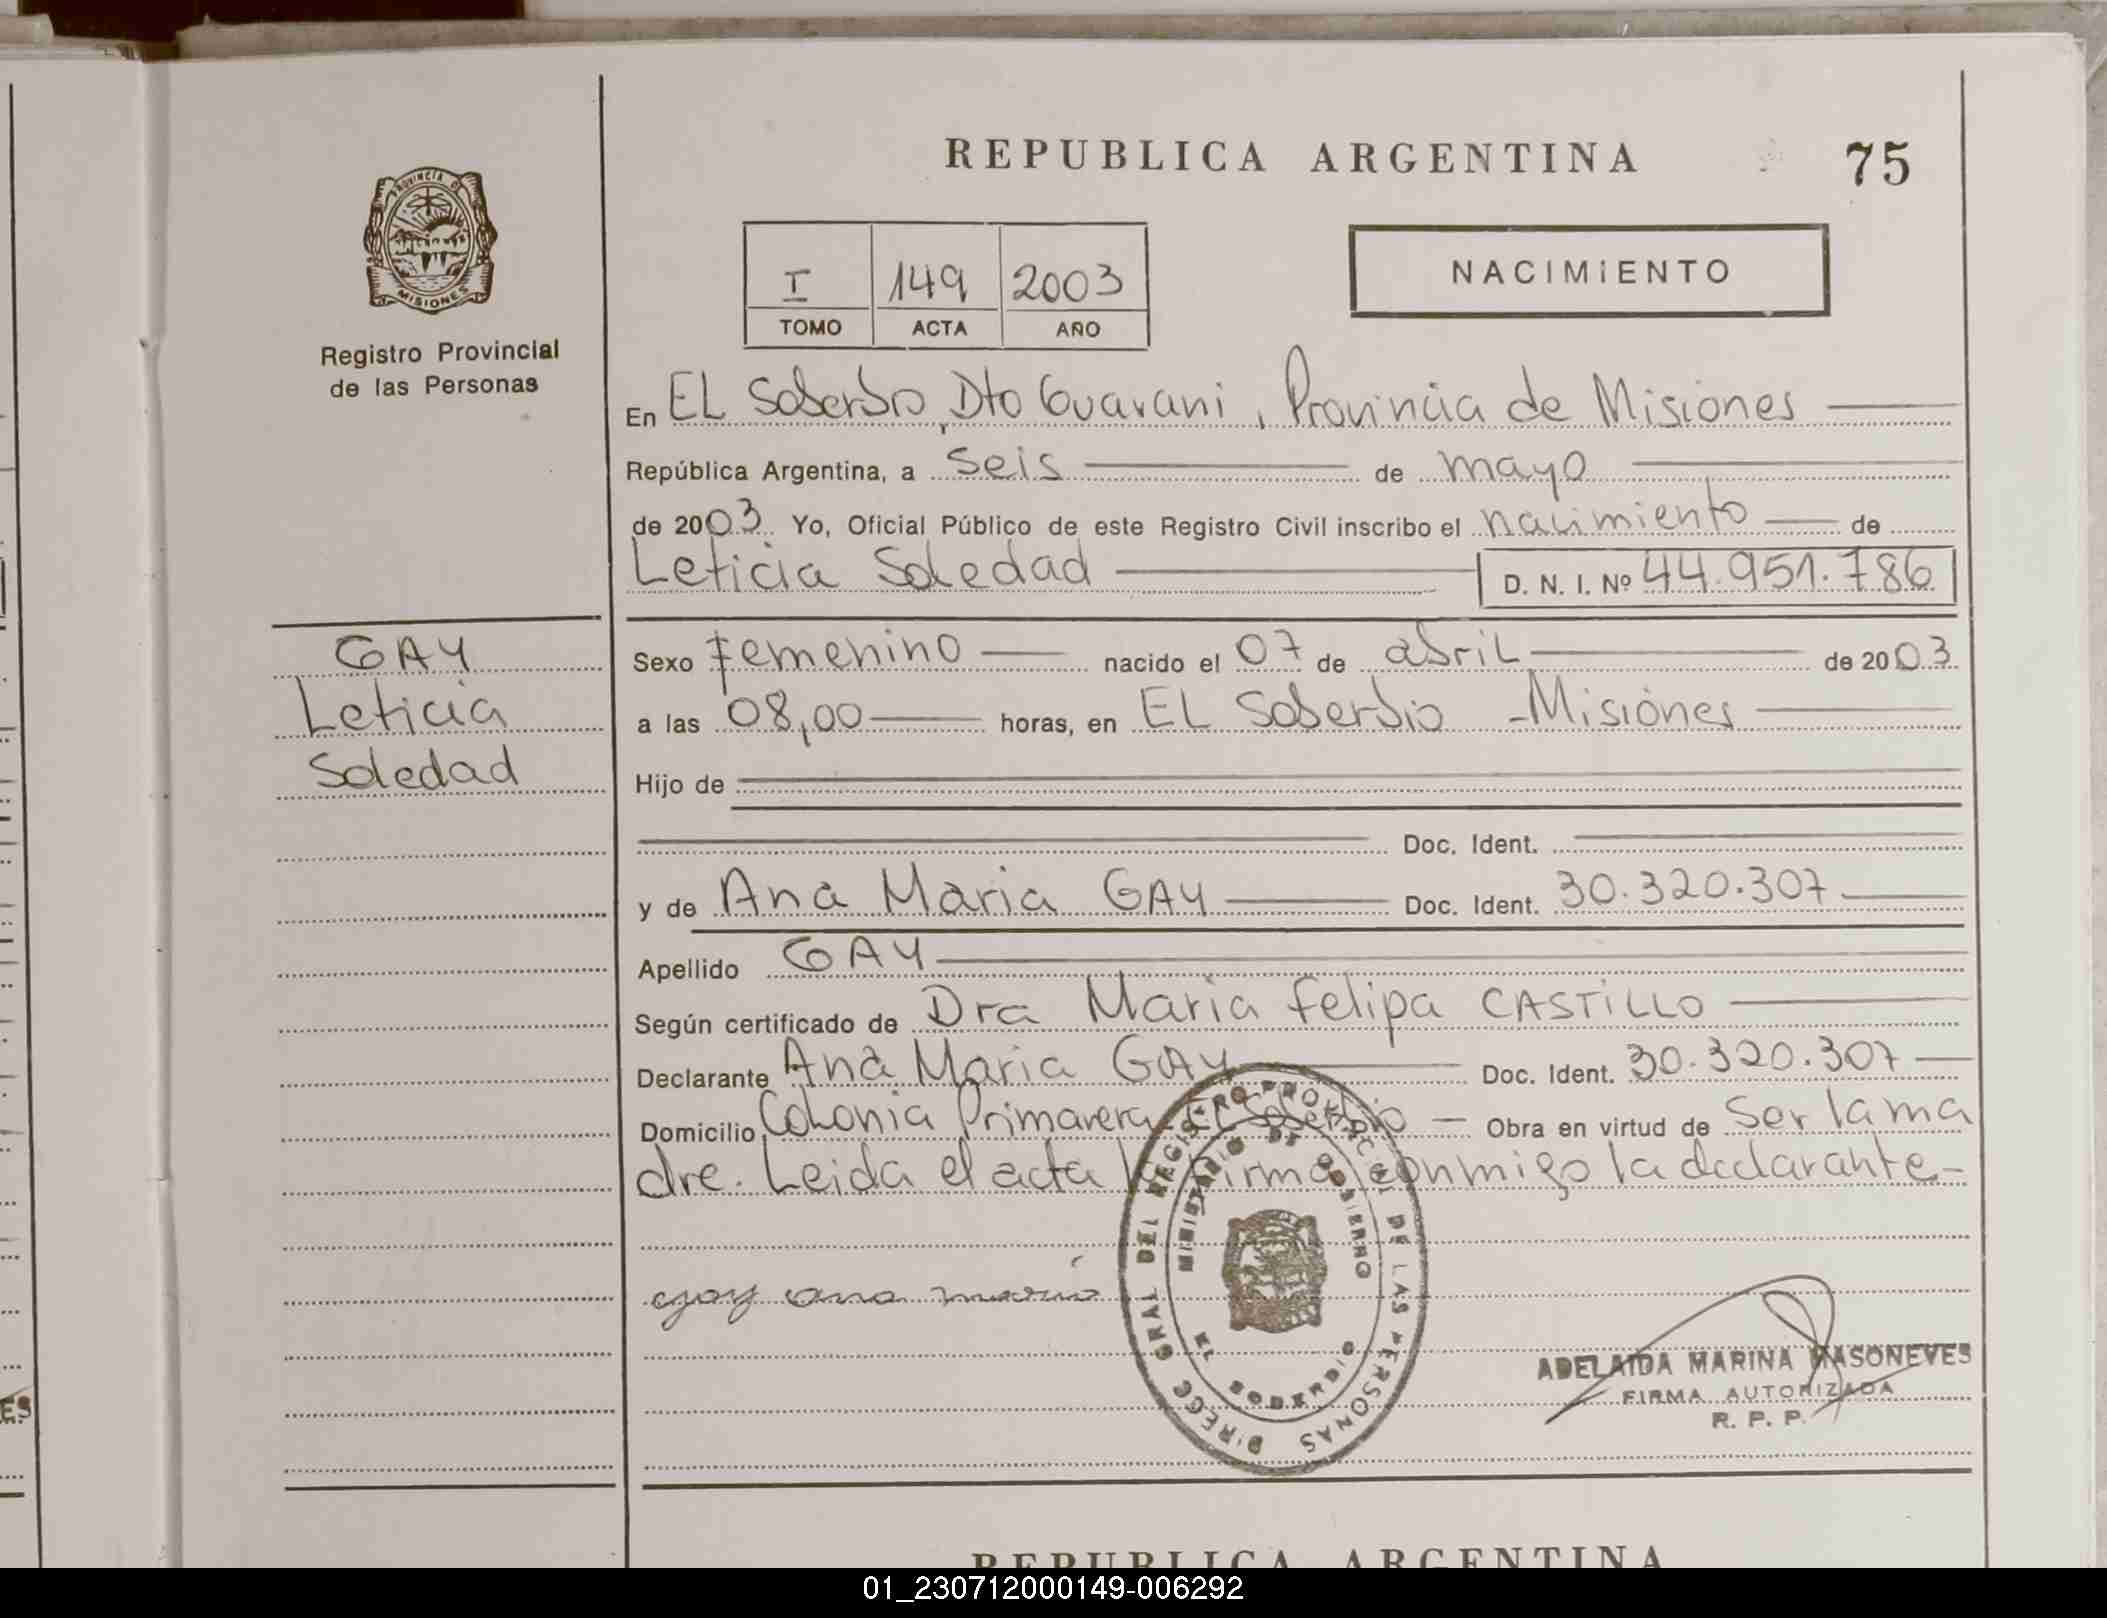 REPUBLICA ARGENTINA
75
PROVINCIA DE
MISIONES
Registro Provincial
de las Personas
I 149 2003
TOMO ACTA AÑO
NACIMIENTO
En EL Soberbio, Dto Guarani, Provincia de Misiones
República Argentina, a seis de mayo
de 2003. Yo, Oficial Público de este Registro Civil inscribo el nacimiento de
Leticia Soledad D. N. I. Nº 44.951.786
GAY
Leticia
Soledad
Sexo femenino nacido el 07 de abril de 2003
a las 08,00 horas, en EL Soberbio - Misiones
Hijo de
Doc. Ident.
y de Ana Maria GAY Doc. Ident. 30.320.307
Apellido GAY
Según certificado de Dra Maria Felipa CASTILLO
Declarante Ana Maria GAY Doc. Ident. 30.320.307
Domicilio Colonia Primavera El Soberbio - Obra en virtud de ser la ma
dre. Leida el acta la firma conmigo la declarante-
gay ana maria
DIRECC GRAL DEL REGISTRO PROVINCIAL DE LAS PERSONAS
MINISTERIO DE GOBIERNO
EL SOBERBIO
ADELAIDA MARINA MASONEVES
FIRMA AUTORIZADA
R. P. P.
ES
REPUBLICA ARGENTINA
01_230712000149-006292